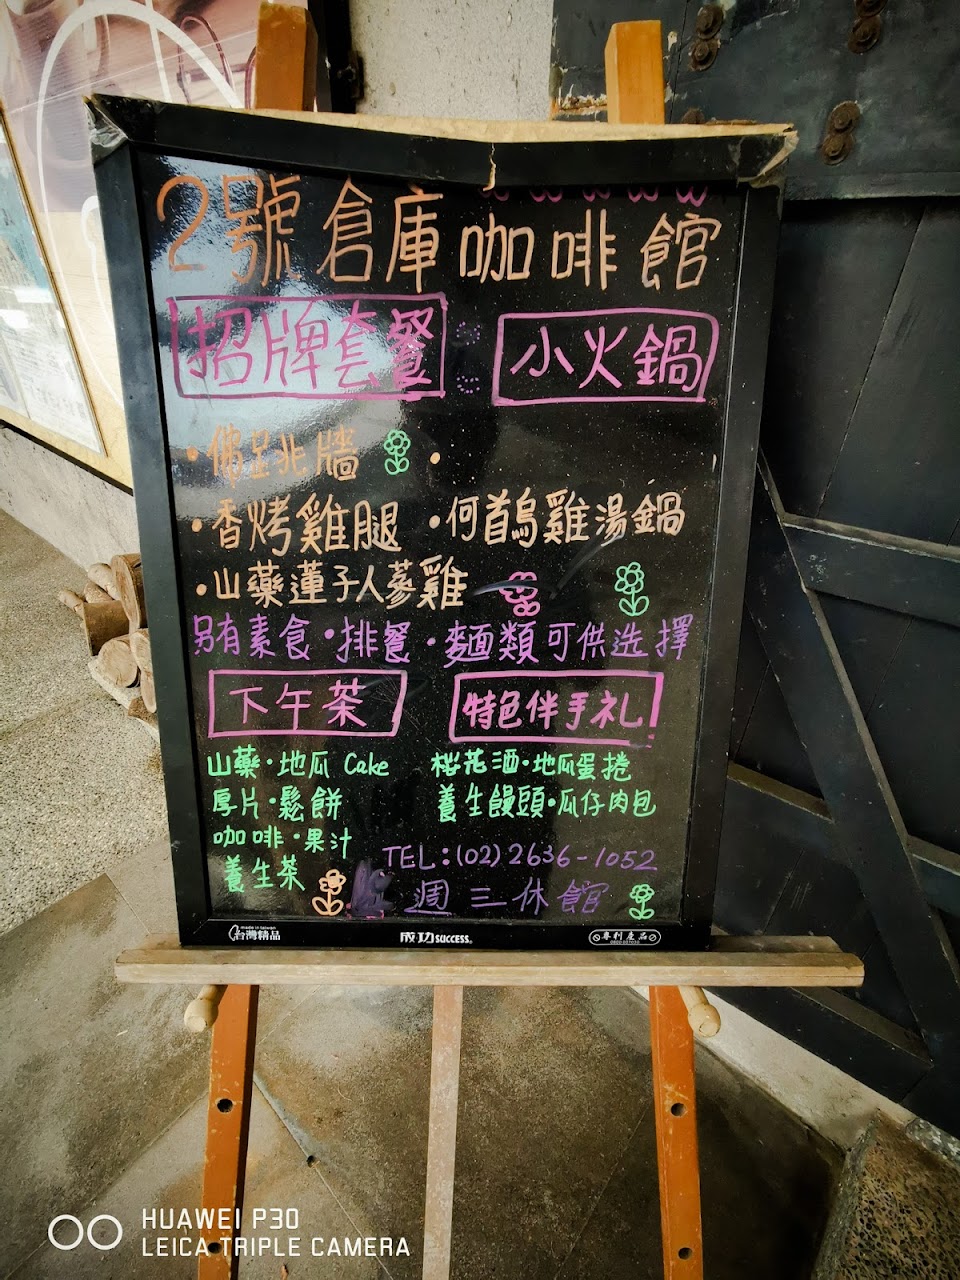 2號倉庫咖啡館
招牌套餐
小火鍋
·佛跳牆
·香烤雞腿 ·何首烏雞湯鍋
·山藥蓮子人蔘雞
另有素食·排餐·麵類可供选擇
下午茶
特色伴手礼
山藥·地瓜 Cake
桜花酒·地瓜蛋捲
厚片·鬆餅
養生饅頭·瓜仔肉包
咖啡·果汁
養生茶
TEL:(02)2636-1052
週三休館
made in taiwan
台灣精品
成功SUCCESS®
專利產品
HUAWEI P30
LEICA TRIPLE CAMERA